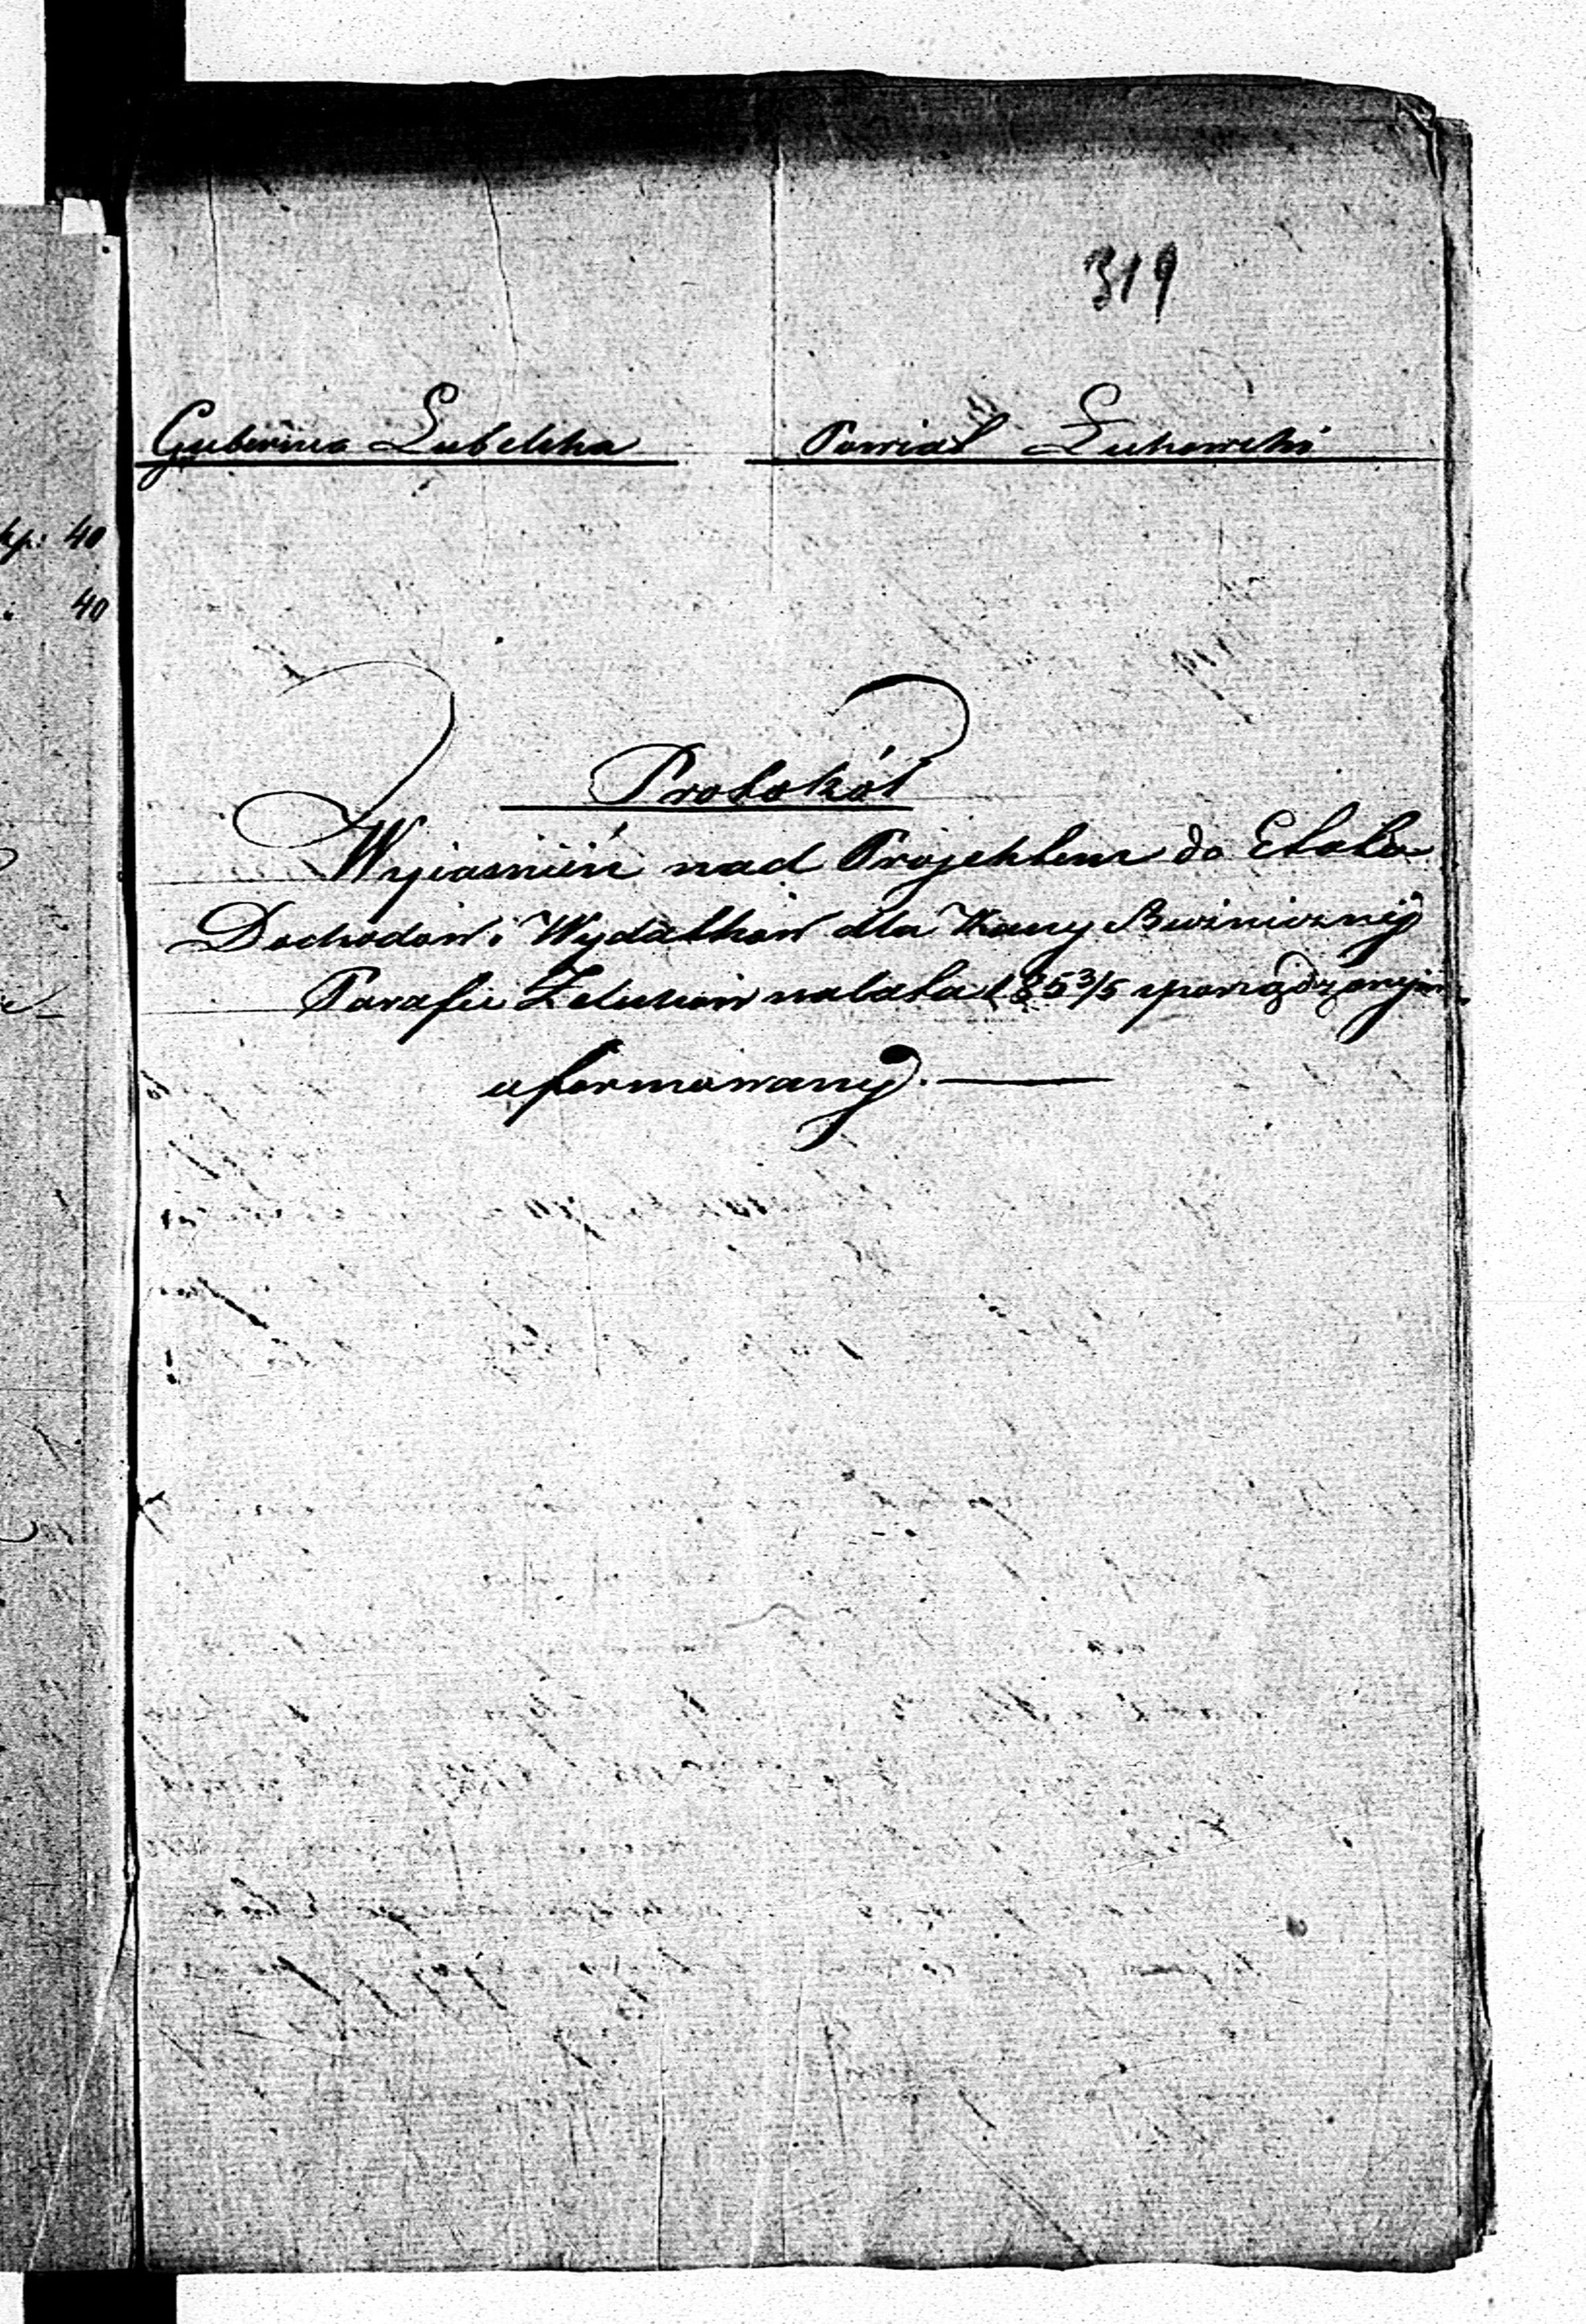 319
Gubernia Lubelska Powiat Łukowski
kp: 40
40
Protokół
Wyiasnień nad Projektem do Etatu
Dochodow i Wydatkow dla Kassy Bużniczney
Parafii Żelechow na lata 1853/5 sporządzonym
uformowany. —